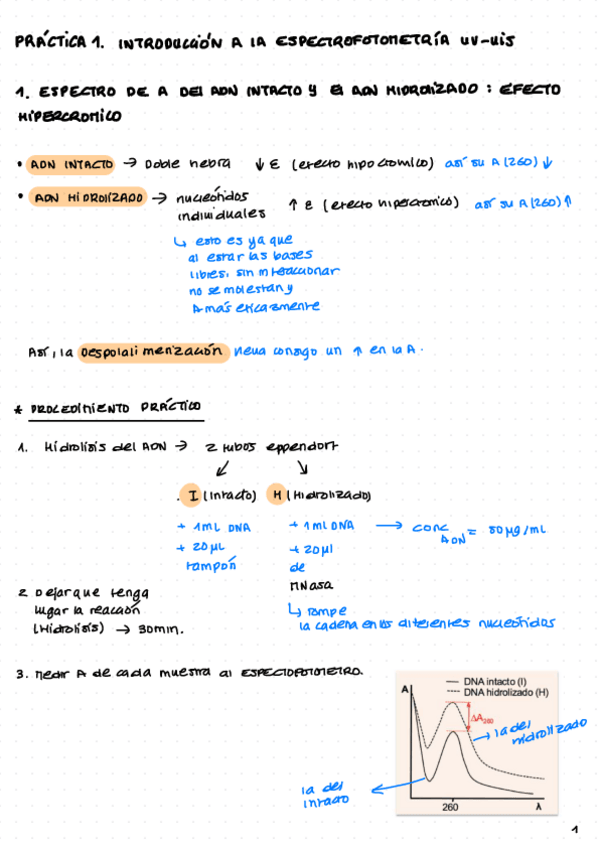 PRÁCTICA 1. INTRODUCCIÓN A LA ESPECTROFOTOMETRÍA UV-VIS
1. ESPECTRO DE A DEL ADN INTACTO Y EL ADN HIDROLIZADO : EFECTO
HIPERCROMICO
• ADN INTACTO → Doble hebra ↓ ε (efecto hipocromico) así su A (260) ↓
• ADN HIDROLIZADO → nucleótidos
individuales ↑ ε (efecto hipercromico) así su A (260) ↑
↳ esto es ya que
al estar las bases
libres, sin interaccionar
no se molestan y
A más eficazmente
Así, la Despolalimerización lleva consigo un ↑ en la A.
* PROCEDIMIENTO PRÁCTICO
1. Hidrólisis del ADN → 2 tubos eppendorf
. I (Intacto) H (Hidrolizado)
+ 1mL DNA + 1mL DNA → conc ADN = 50 μg/mL
+ 20μL + 20μl
tampón de
MNasa
↳ rompe
la cadena en los diferentes nucleótidos
2 Dejar que tenga
lugar la reacción
(Hidrólisis) → 30min.
3. Medir A de cada muestra al ESPECTOFOTOMETRO.
A
DNA intacto (I)
DNA hidrolizado (H)
ΔA260
→ la del
hidrolizado
la del
intacto
260 λ
1